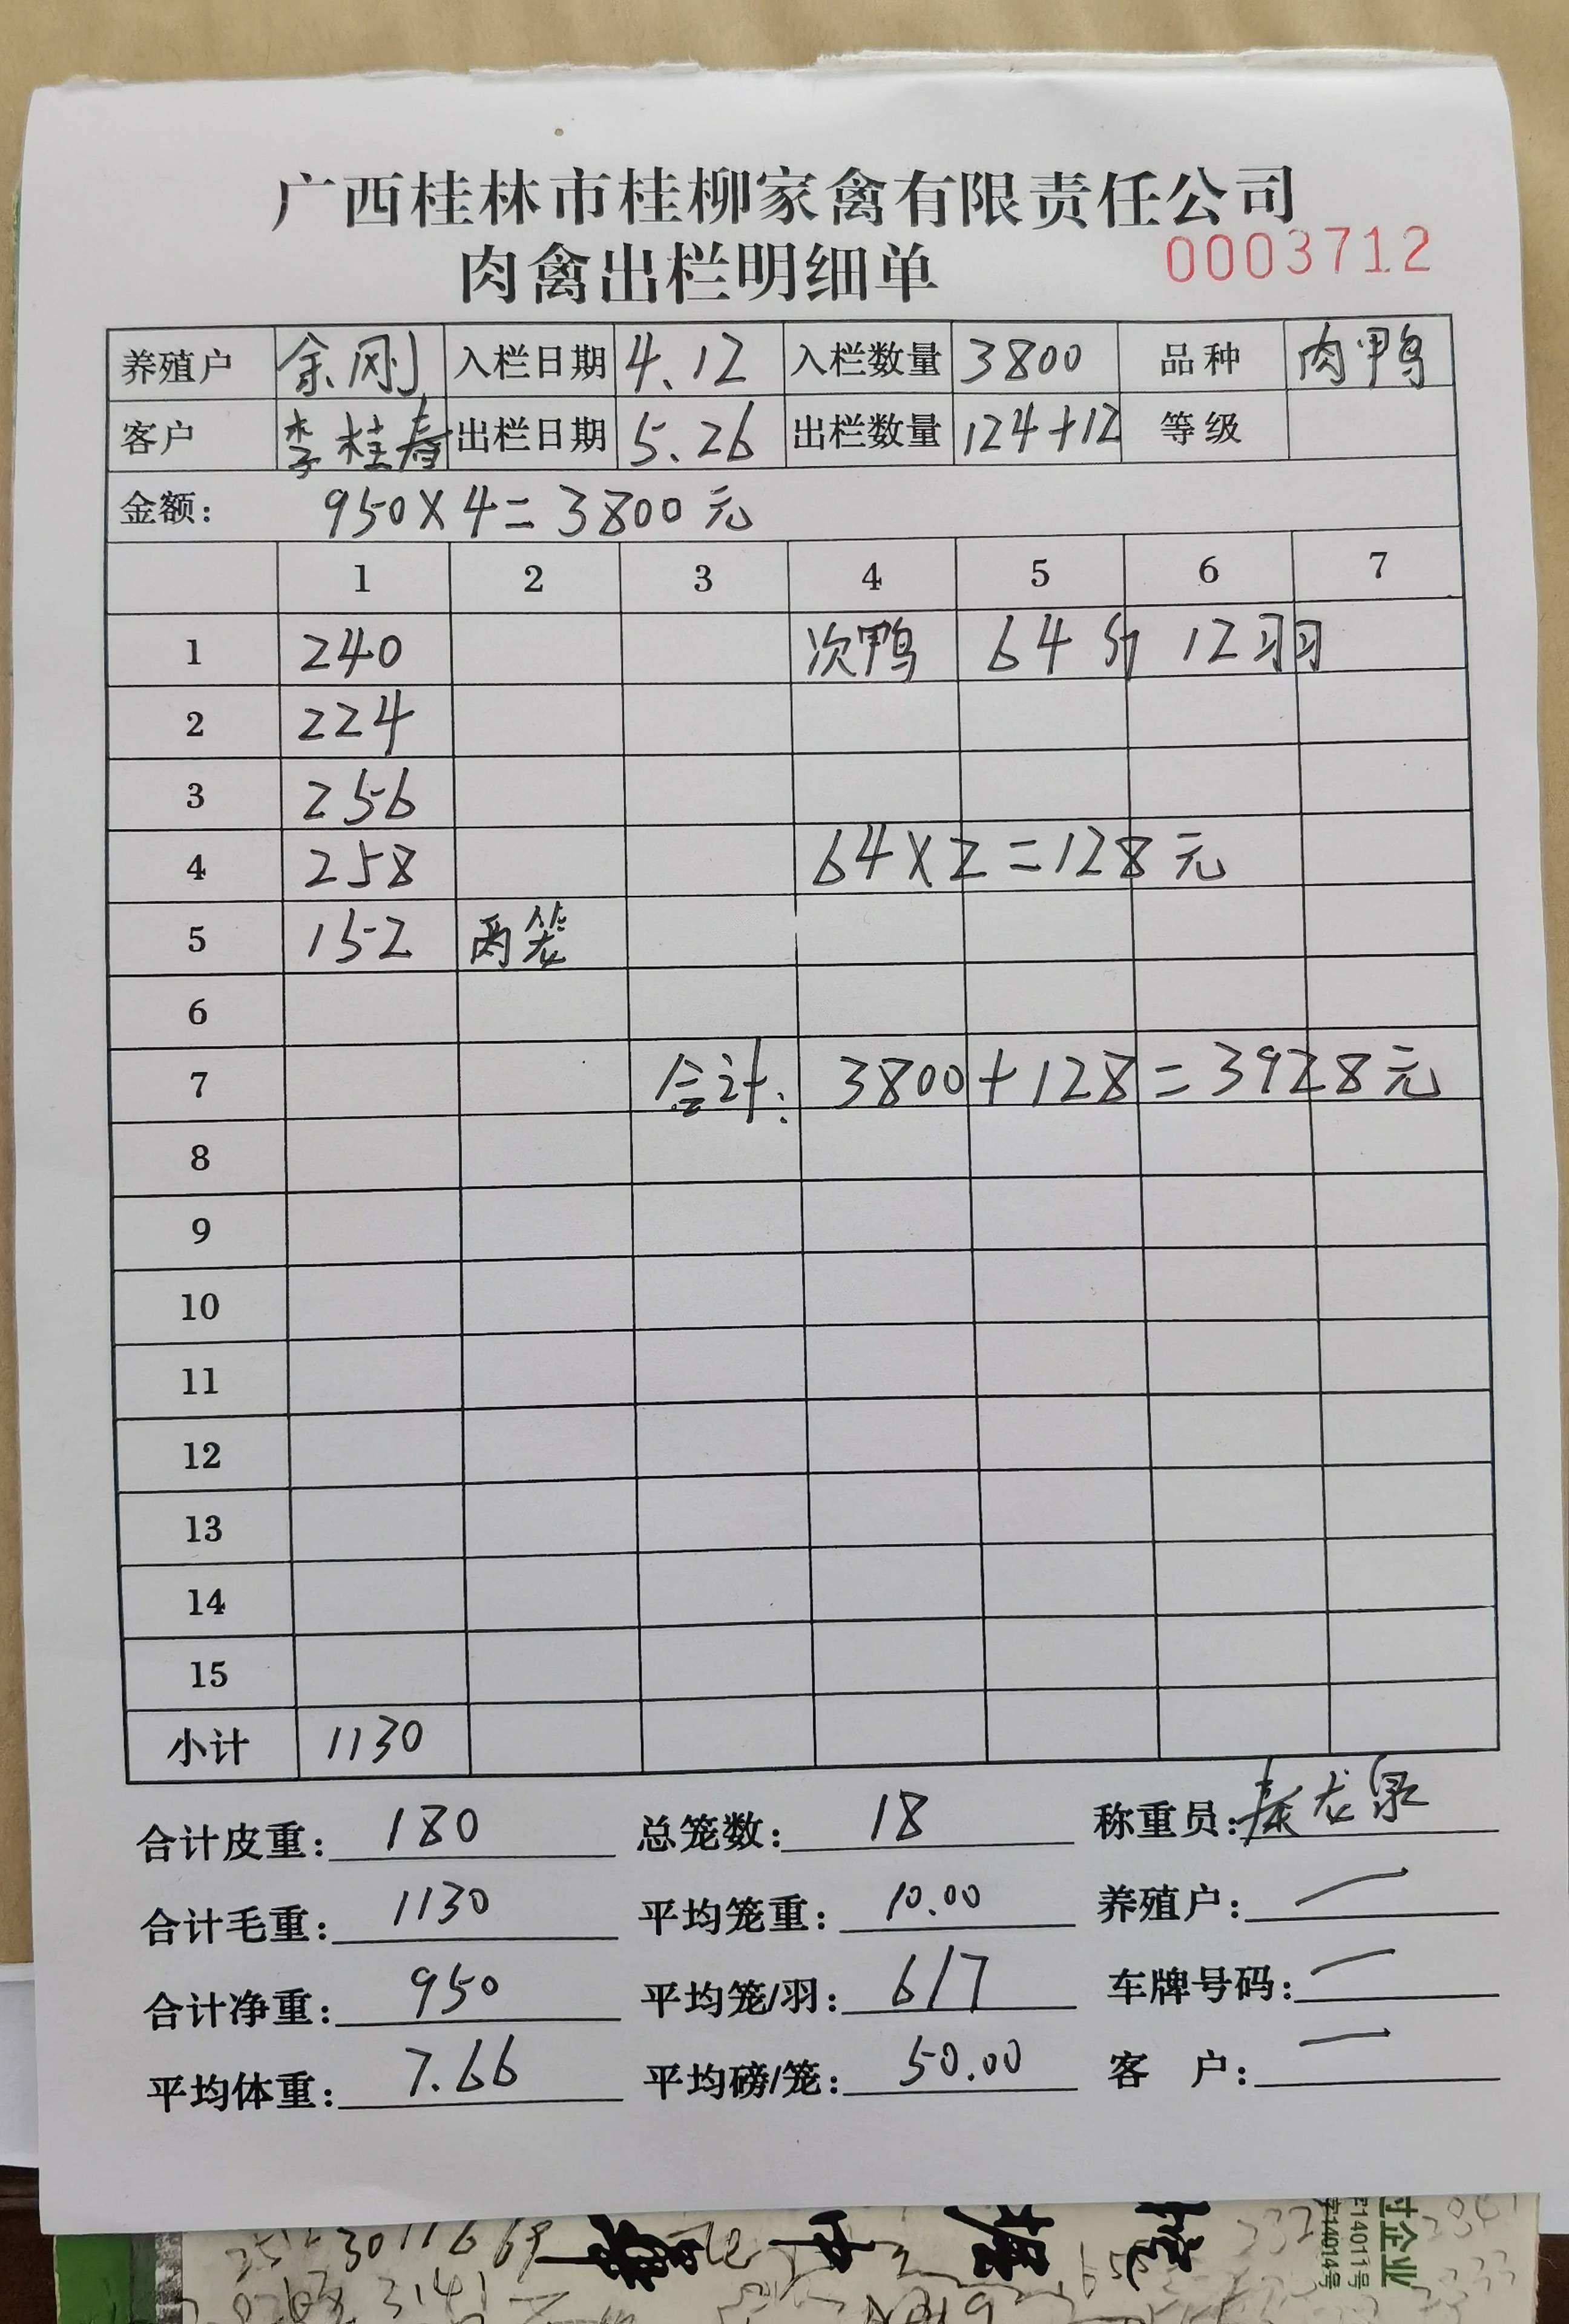 广西桂林市桂柳家禽有限责任公司
肉禽出栏明细单 0003712
养殖户 余刚 入栏日期 4.12 入栏数量 3800 品种 肉鸭
客户 李桂春 出栏日期 5.26 出栏数量 124+12 等级
金额: 950×4=3800元
1 2 3 4 5 6 7
1 240 次鸭 64斤 12羽
2 224
3 256
4 258 64×2=128元
5 152 两笼
6
7 合计: 3800+128=3928元
8
9
10
11
12
13
14
15
小计 1130
合计皮重: 180 总笼数: 18 称重员:
合计毛重: 1130 平均笼重: 10.00 养殖户:
合计净重: 950 平均笼/羽: 6/7 车牌号码:
平均体重: 7.66 平均磅/笼: 50.00 客 户: